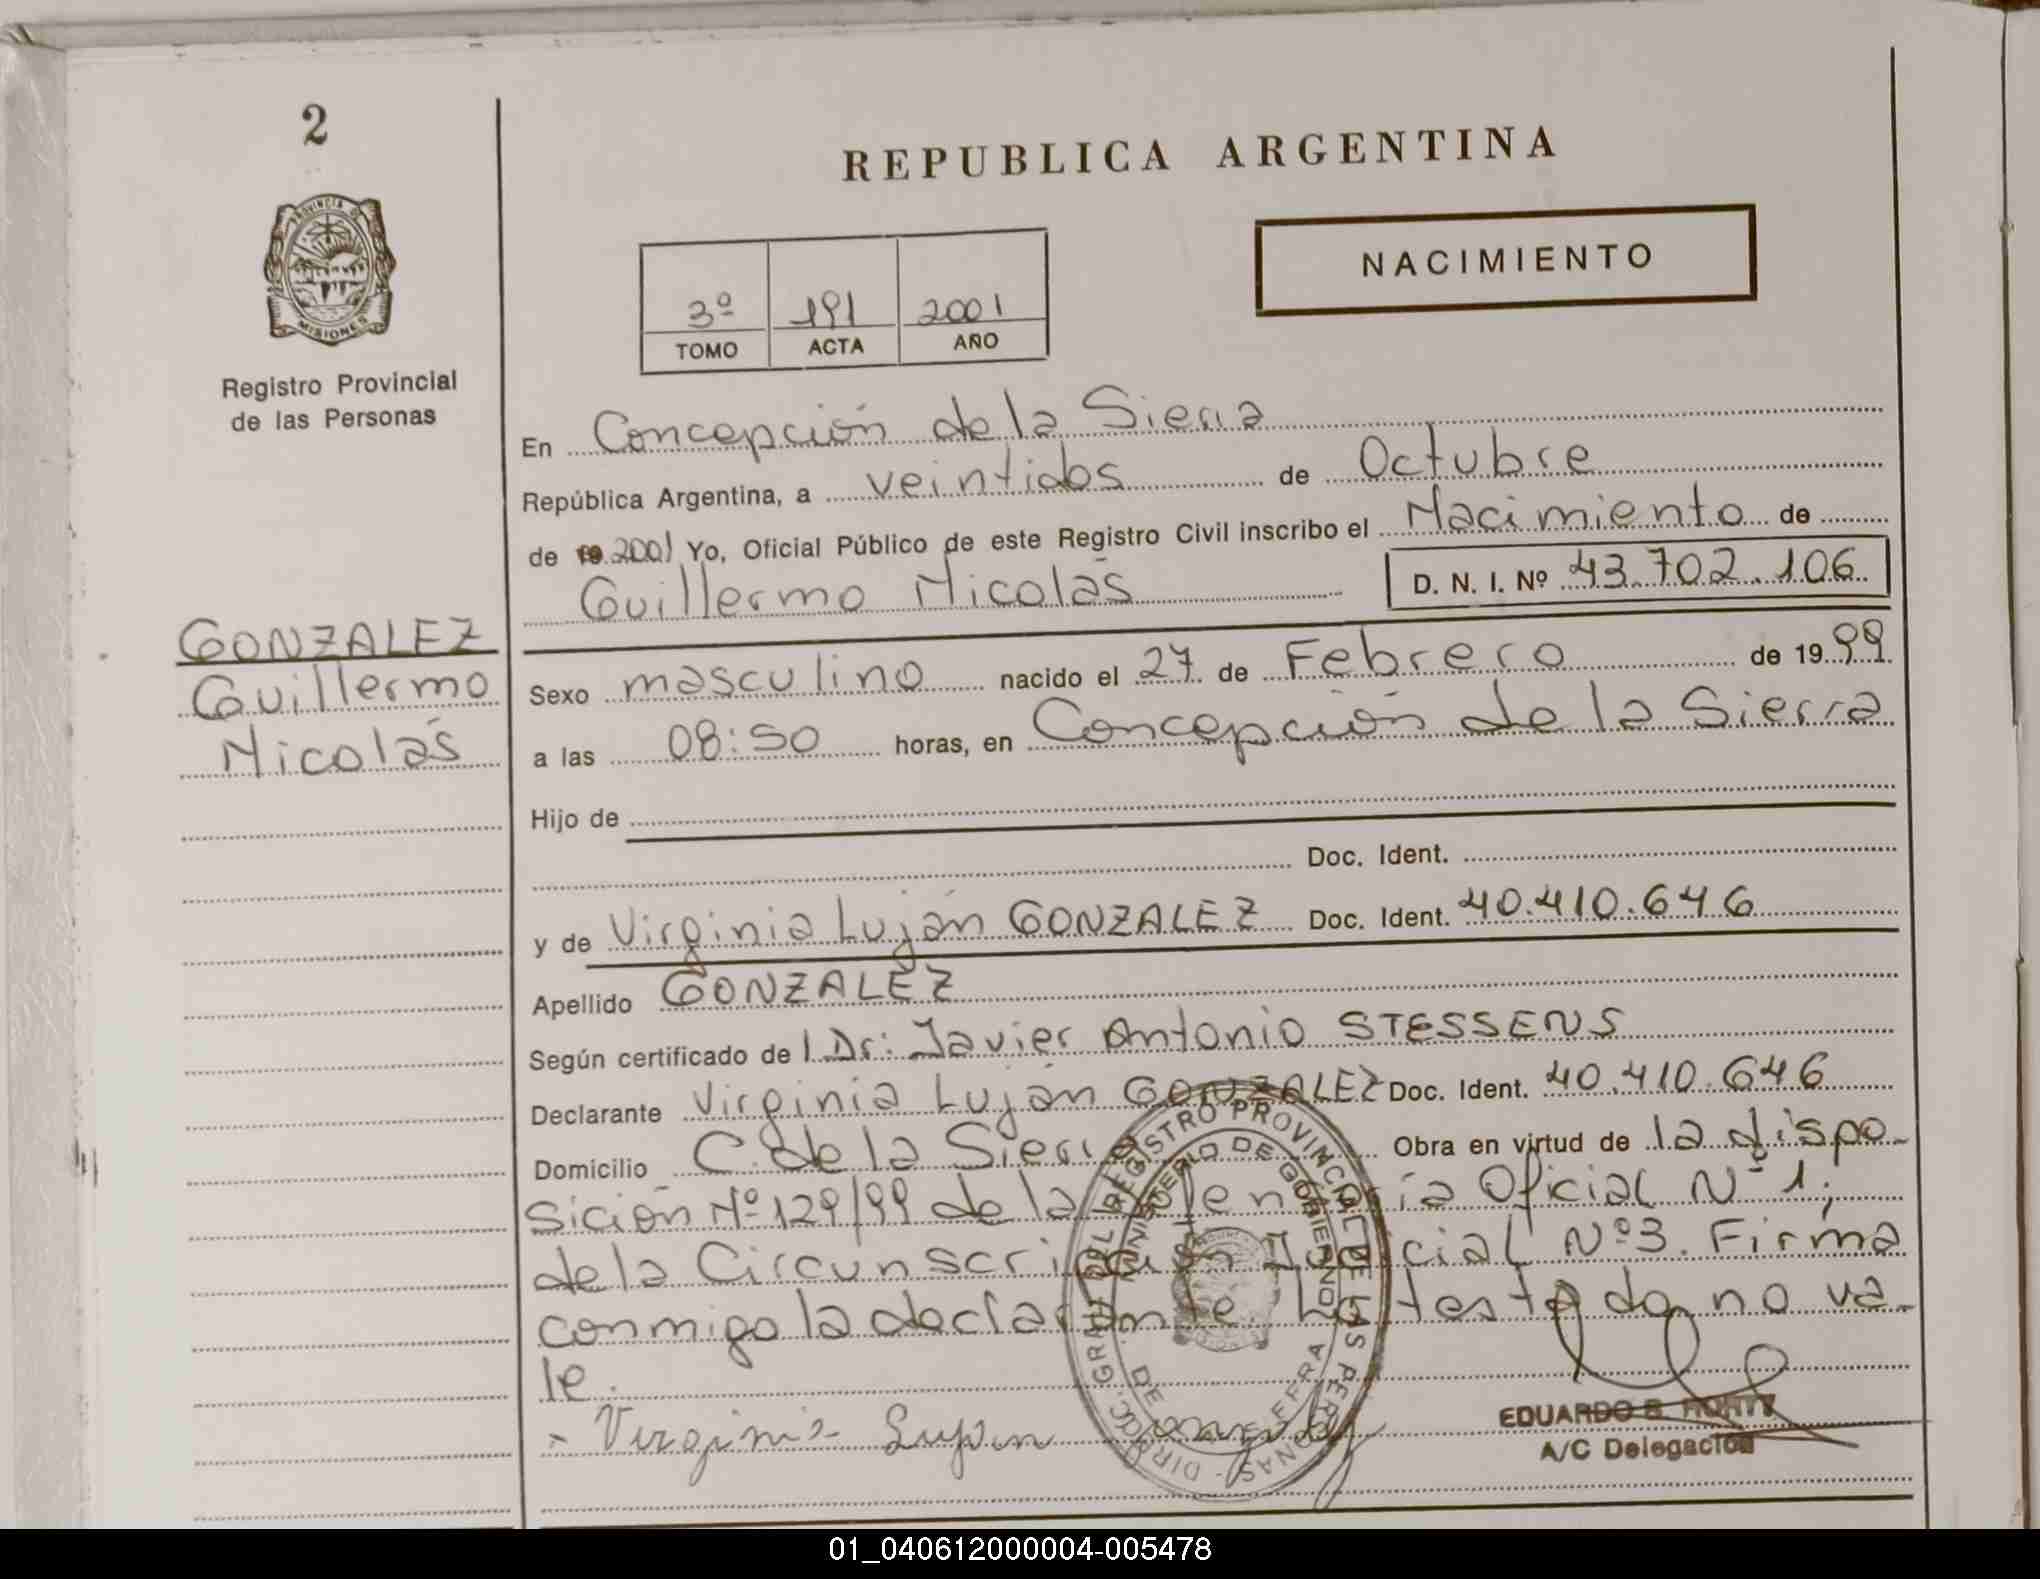 2
REPUBLICA ARGENTINA
PROVINCIA DE
MISIONES
NACIMIENTO
3º 191 2001
TOMO ACTA AÑO
Registro Provincial
de las Personas
En Concepción de la Sierra
República Argentina, a veintidos de Octubre
de 2001 Yo, Oficial Público de este Registro Civil inscribo el Nacimiento de
Guillermo Nicolás D. N. I. Nº 43.702.106
GONZALEZ
Guillermo
Nicolás
Sexo masculino nacido el 27 de Febrero de 1999
a las 08:50 horas, en Concepción de la Sierra
Hijo de
Doc. Ident.
y de Virginia Luján GONZALEZ Doc. Ident. 40.410.646
Apellido GONZALEZ
Según certificado de l Dr: Javier Antonio STESSENS
Declarante Virginia Luján GONZALEZ Doc. Ident. 40.410.646
Domicilio C. de la Sierra Obra en virtud de la dispo-
sición Nº 129/99 de la Oficial Nº 1,
de la Circunscripción Judicial Nº 3. Firma
conmigo la declarante. Lo testado no va-
le.
Virginia Lujan Gonzalez
DIRECC. GRAL. DEL REGISTRO PROVINCIAL DE LAS PERSONAS
MINISTERIO DE GOBIERNO
EDUARDO B.
A/C Delegación
01_040612000004-005478